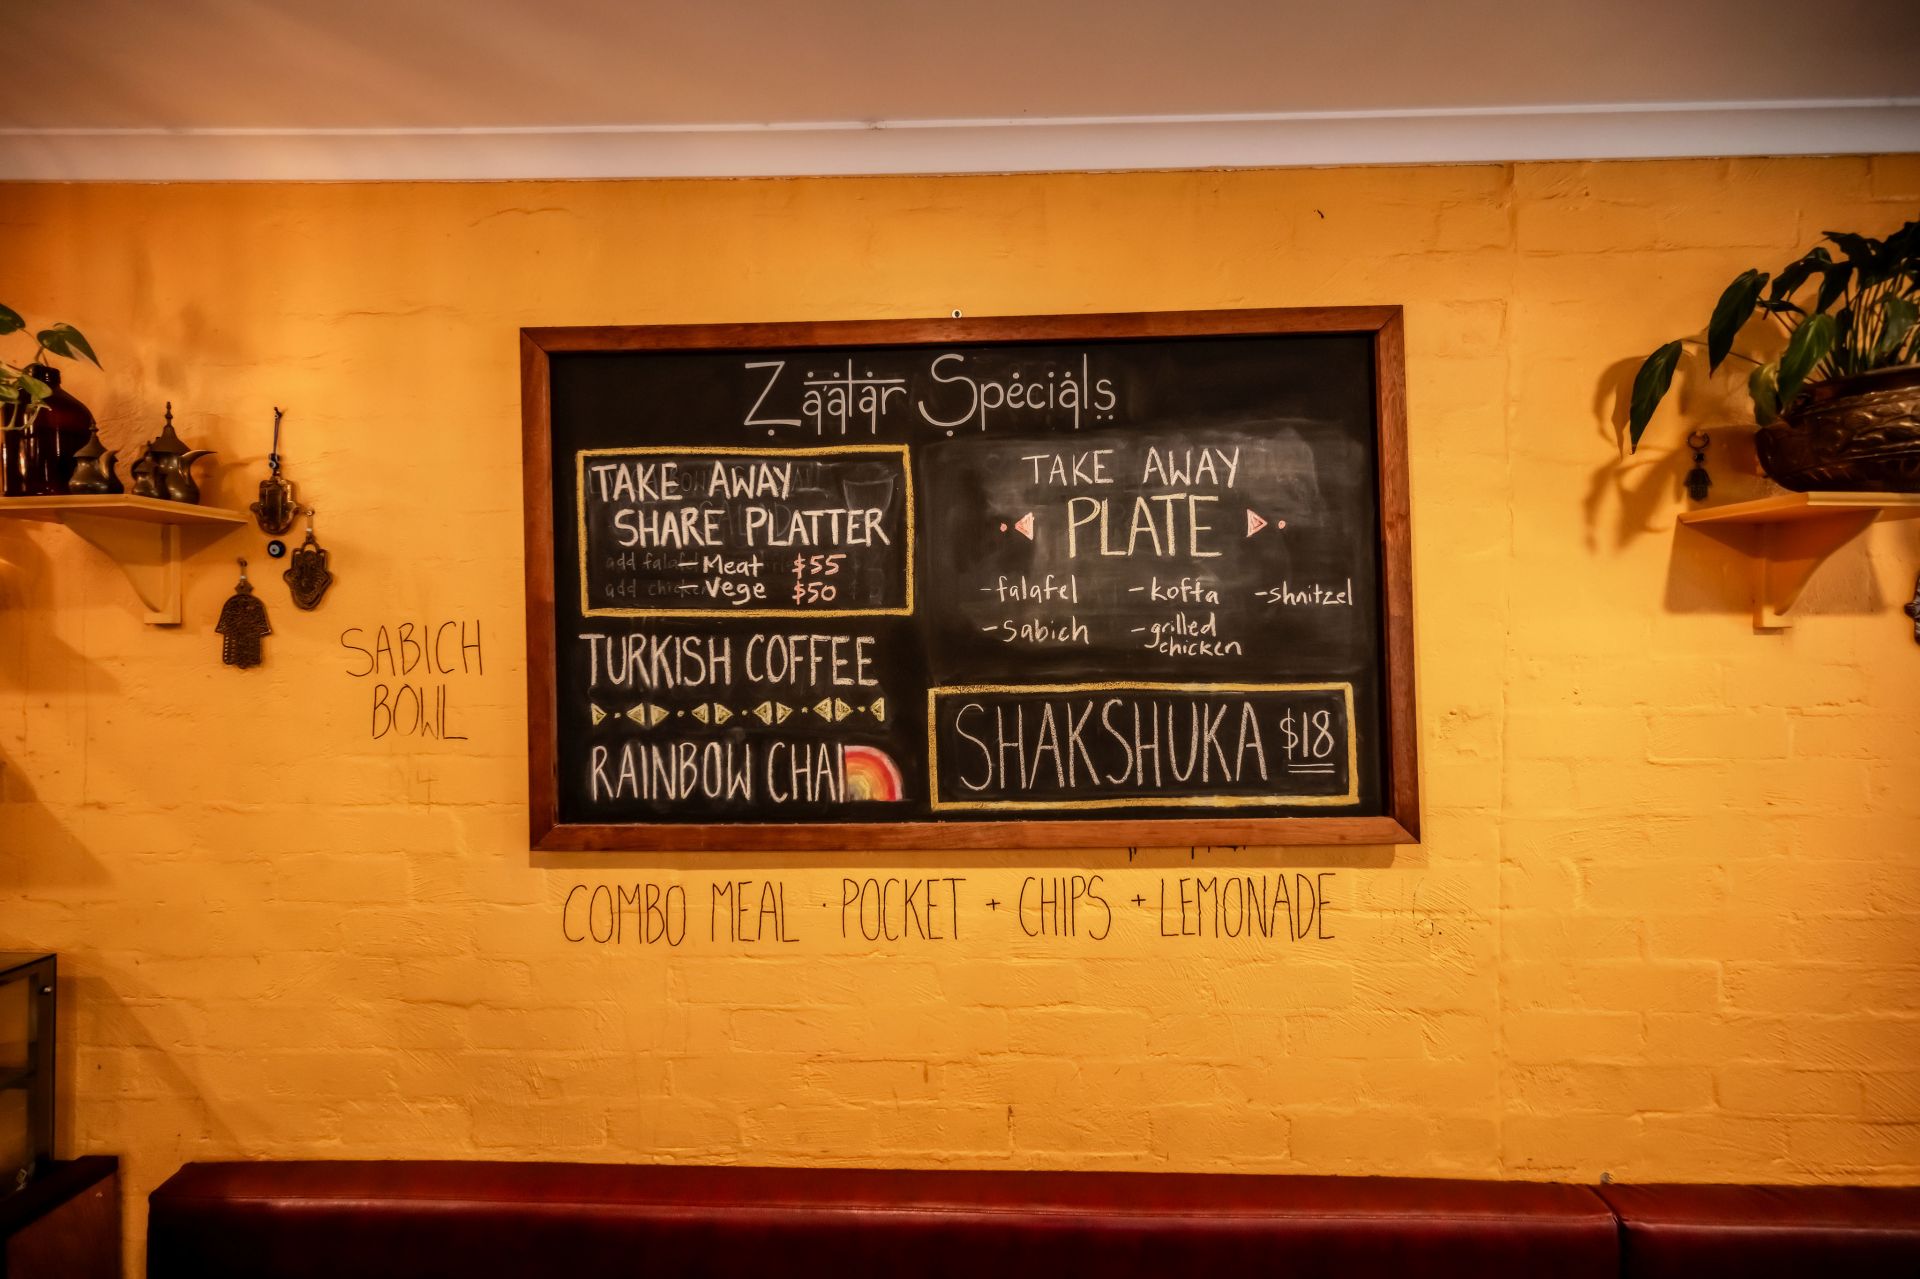 Zaatar Specials
TAKE AWAY
SHARE PLATTER
- Meat $55
- Vege $50
TURKISH COFFEE
RAINBOW CHAI
TAKE AWAY
PLATE
- falafel - kofta - shnitzel
- sabich - grilled
chicken
SHAKSHUKA $18
SABICH
BOWL
COMBO MEAL · POCKET + CHIPS + LEMONADE